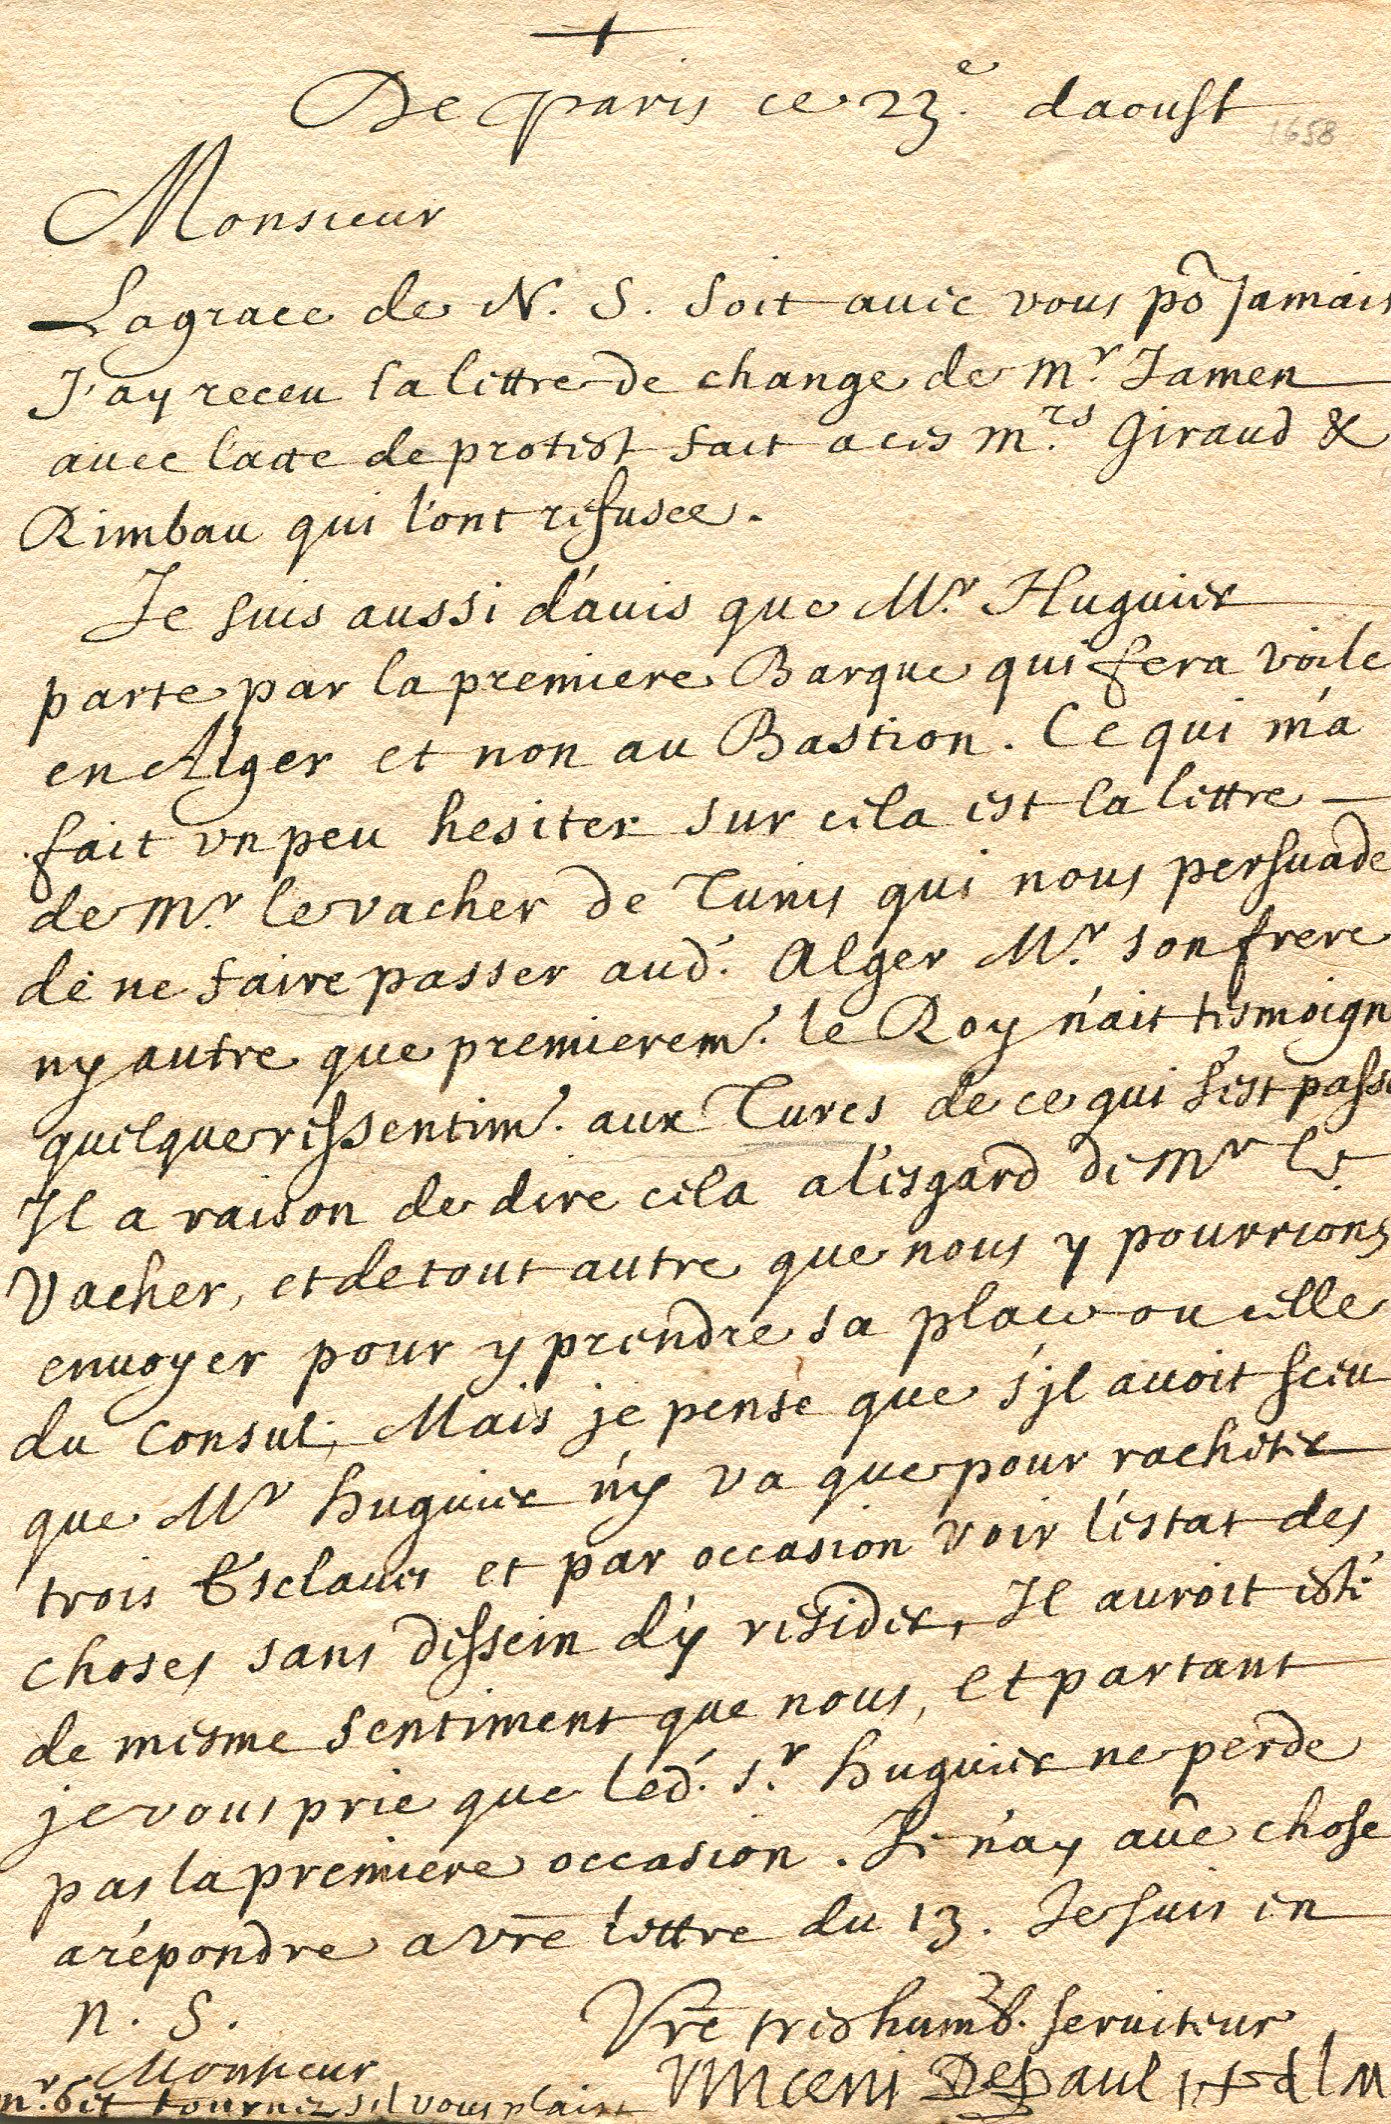 De paris ce 23.e daoust
1658
Monsieur
La grace de N. S. soit auec vous po Jamais
J'ay receu la lettre de change de Mr. Jamen
auec l'acte de protest fait a ces Mrs. Giraud &
Rimbau qui l'ont refusée.
Je suis aussi d'auis que Mr. Huguier
parte par la premiere Barque qui fera voile
en Alger et non au Bastion. Ce qui m'a
fait vn peu hesiter sur cela est la lettre
de Mr. le vacher de Tunis qui nous persuade
de ne faire passer aud. Alger Mr. son frere
ny autre que premierem.t le Roy n'ait tesmoign
quelque ressentim.t aux Turcs de ce qui s'est passé
Il a raison de dire cela a l'esgard de Mr le
Vacher, et de tout autre que nous y pourrions
enuoyer pour y prendre sa place ou celle
du Consul; Mais je pense que s'jl auoit sceu
que Mr huguier n'y va que pour racheter
trois Esclaues et par occasion voir l'estat des
choses sans dessein d'y resider, Il auroit esté
de mesme sentiment que nous, et partant
je vous prie que led. Sr. huguier ne perde
pas la premiere occasion. Je n'ay aûe chose
a répondre a vrē lettre du 13. Je suis en
n. S.
Vrē tres humb. seruiteur
Monsieur
Vincent Depaul i p d l M
Mr. Get tournez sil vous plaist